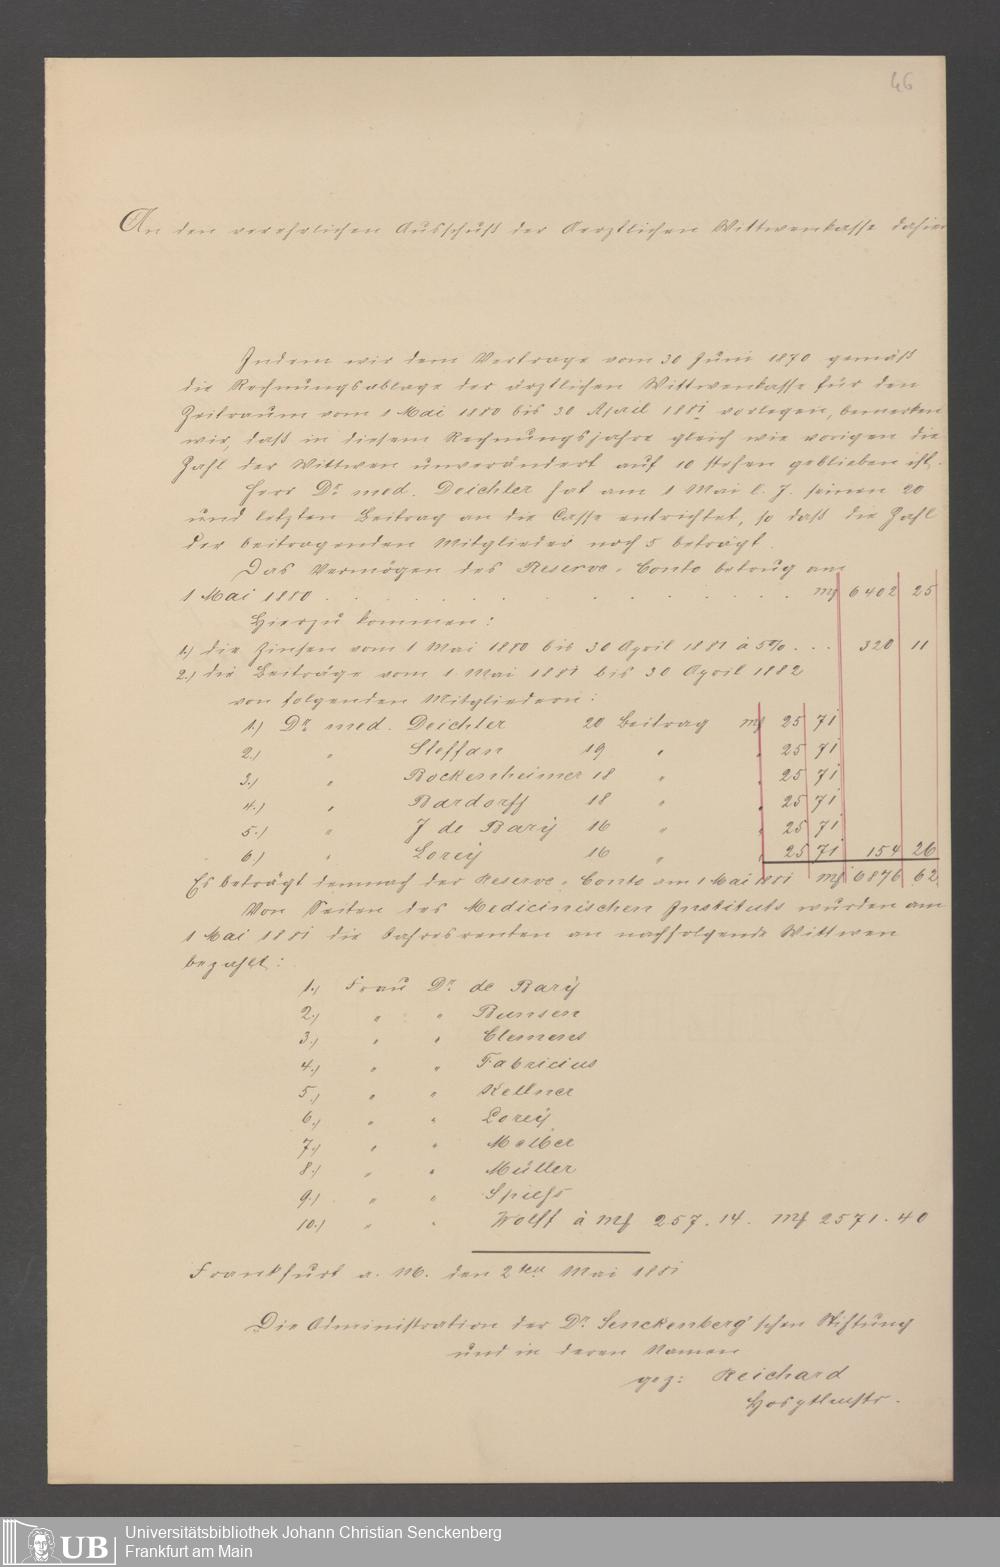 46
An den verehrlichen Ausschuß der Aerztlichen Wittwenkasse dahier
Indem wir dem Vertrage vom 30 Juni 1870 gemäß
die Rechnungsablage der ärztlichen Wittwenkasse für den
Zeitraum vom 1 Mai 1880 bis 30 April 1881 vorlegen, bemerken
wir, daß in diesem Rechnungsjahre gleich wie vorigen die
Zahl der Wittwen unverändert auf 10 stehen geblieben ist.
Herr Dr med. Deichler hat am 1 Mai l. J. seinen 20
und letzten Beitrag an die Casse entrichtet, so daß die Zahl
der beitragenden Mitglieder noch 5 beträgt.
Das Vermögen des Reserve-Conto betrug am
1 Mai 1880 . . . . . . . . . . . . . . . Mf 6402 25
Hierzu kommen:
1.) die Zinsen vom 1 Mai 1880 bis 30 April 1881 à 5% . . . 320 11
2.) die Beiträge vom 1 Mai 1881 bis 30 April 1882
von folgenden Mitgliedern:
1.) Dr med. Deichler 20 Beitrag Mf 25 71
2.) " Steffan 19 " " 25 71
3.) " Bockenheimer 18 " " 25 71
4.) " Bardorff 18 " " 25 71
5.) " J de Bary 16 " " 25 71
6.) " Lorey 16 " " 25 71 154 26
Es beträgt demnach der Reserve-Conto am 1 Mai 1881 Mf 6876 62
Von Seiten des Medicinischen Instituts wurden am
1 Mai 1881 die Jahresrenten an nachfolgende Wittwen
bezahlt:
1.) Frau Dr de Bary
2.) " " Bunsen
3.) " " Clemens
4.) " " Fabricius
5.) " " Kellner
6.) " " Lorey
7.) " " Melber
8.) " " Müller
9.) " " Spieß
10.) " " Wolff à Mf 257.14. Mf 2571.40
Frankfurt a. M. den 2ten Mai 1881
Die Administration der Dr Senckenberg'schen Stiftung
und in deren Namen
gez: Reichard
Universitätsbibliothek Johann Christian Senckenberg
Frankfurt am Main
UB